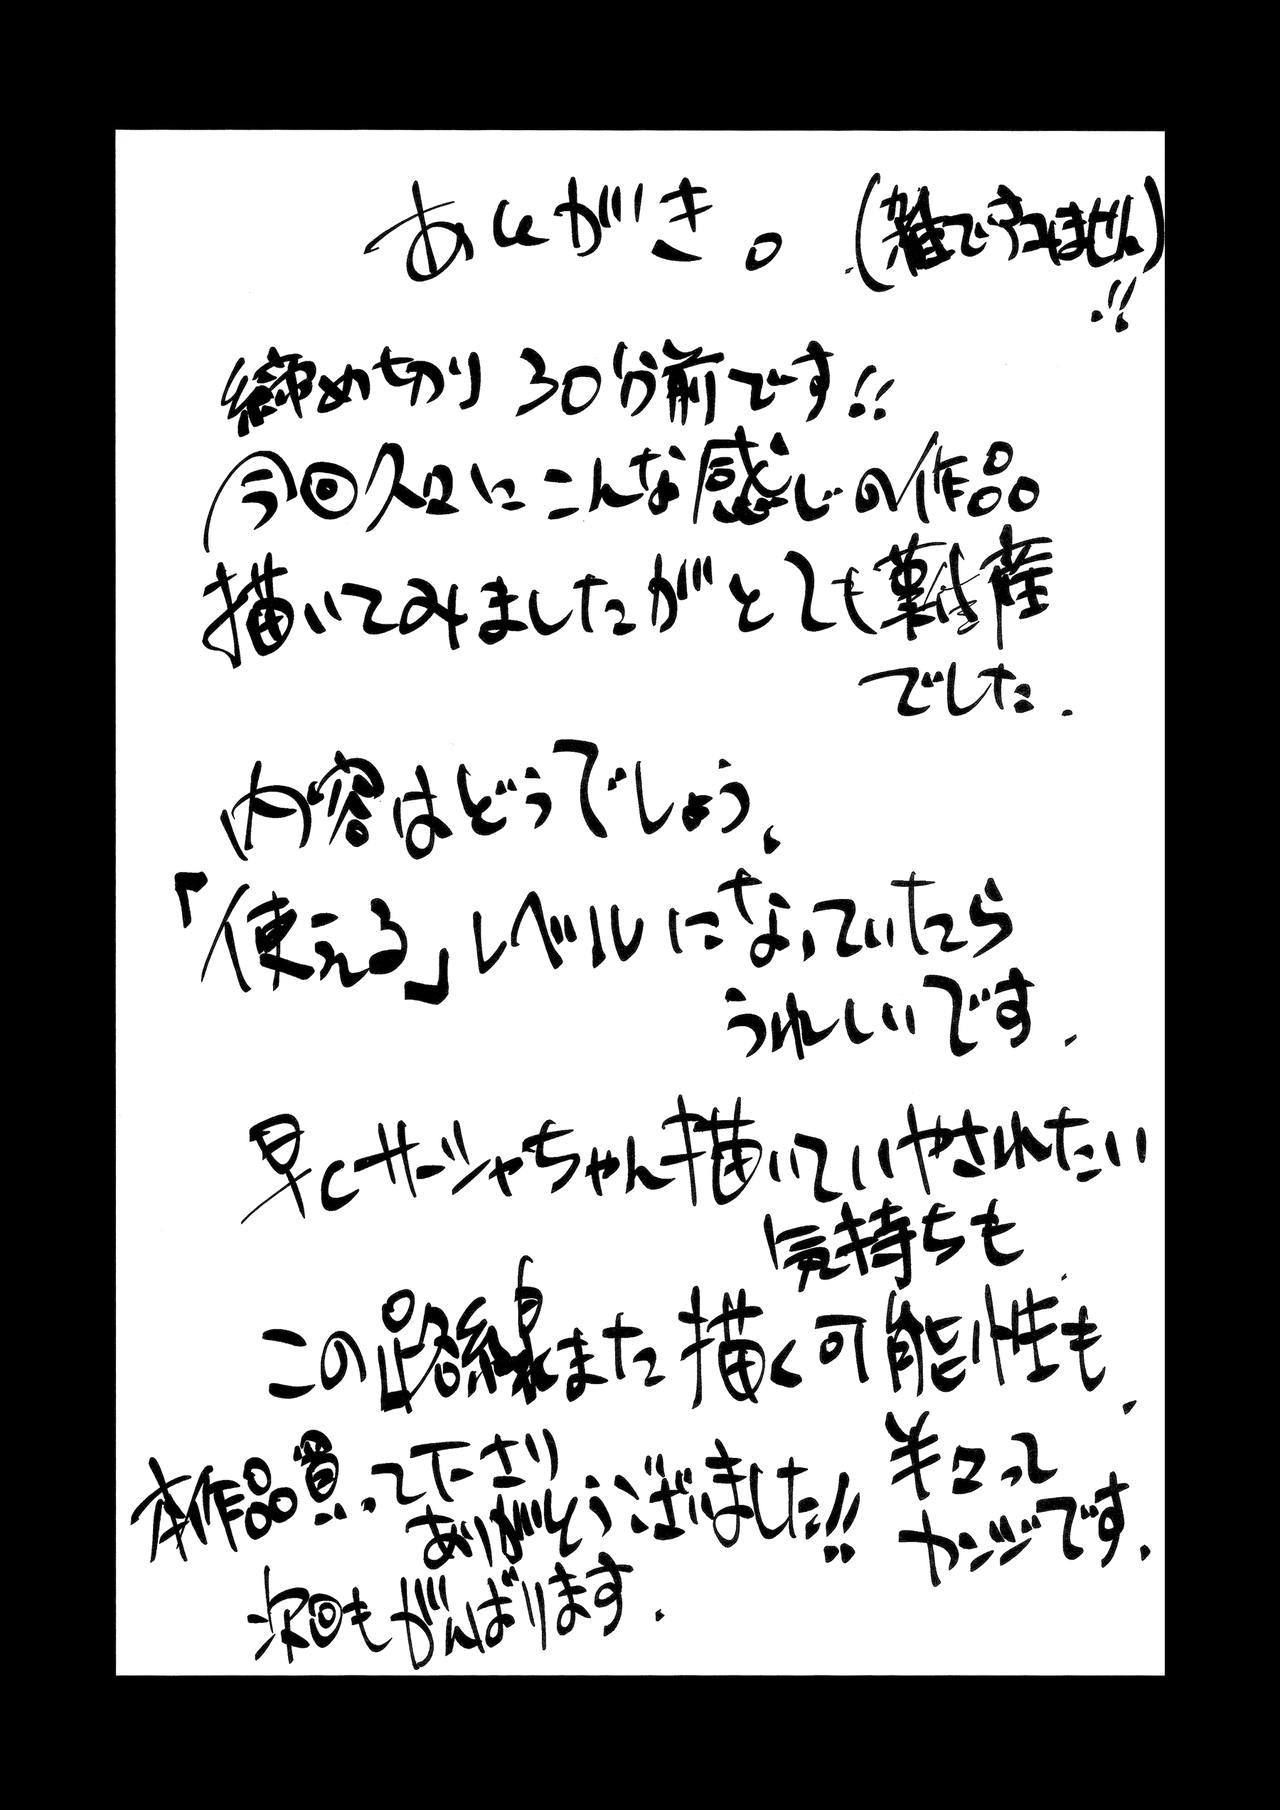 あとがき。 (雑ですみません)!!
締め切り30分前です!!
今回久々にこんな感じの作品
描いてみましたがとても難産
でした.
内容はどうでしょう、
「使える」レベルになっていたら
うれしいです.
早くサーシャちゃん描いていやされたい
気持ちも
この路線また描く可能性も、
半々って
カンジです.
本作品買って下さり
ありがとうございました!!
次回もがんばります.